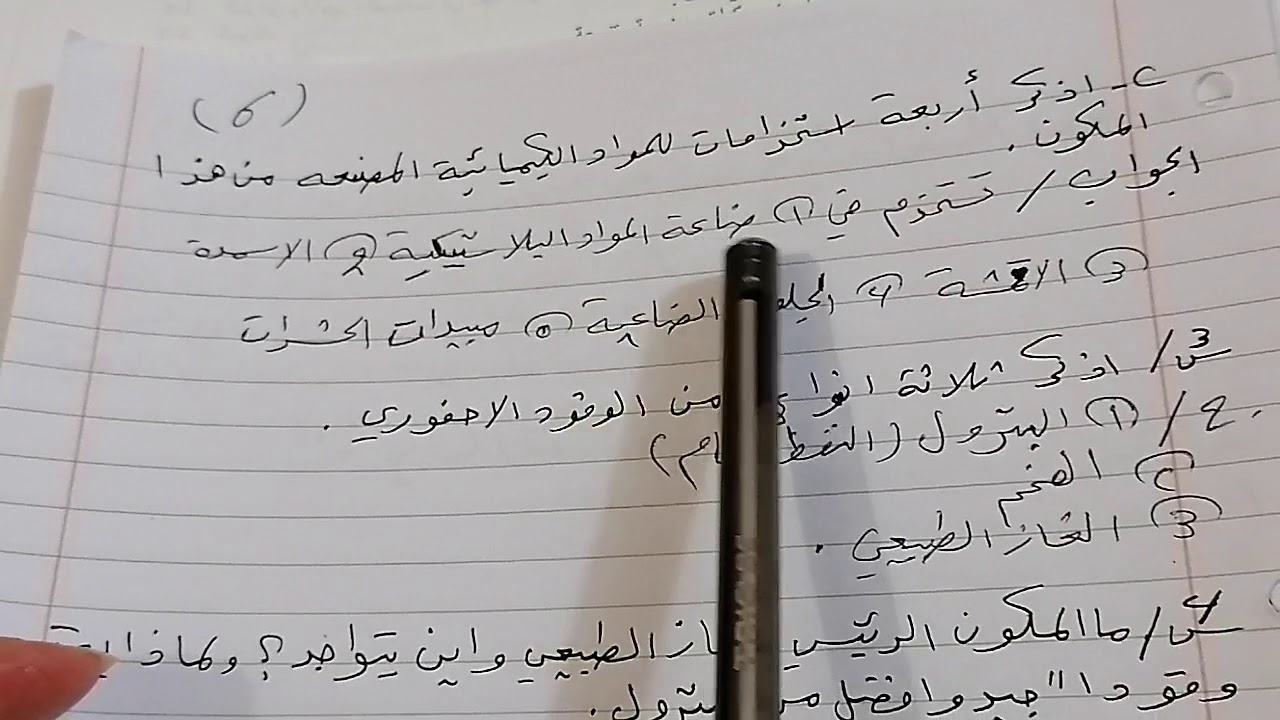 (٦)
٢- اذكر أربعة استخدامات للمواد الكيميائية المصنعه من هذا
المكون.
الجواب / تستخدم في ① صناعة المواد البلاستيكية ② الاسمدة
③ الاقمشة ④ الصناعية ⑤ مبيدات الحشرات
س٣/ اذكر ثلاثة انواع من الوقود الاحفوري.
ج/ ① البترول (النفط
② الفحم
③ الغاز الطبيعي.
س٤/ ما المكون الرئيسي الطبيعي واين يتواجد؟ ولماذا
وقودا" جيد وافضل من